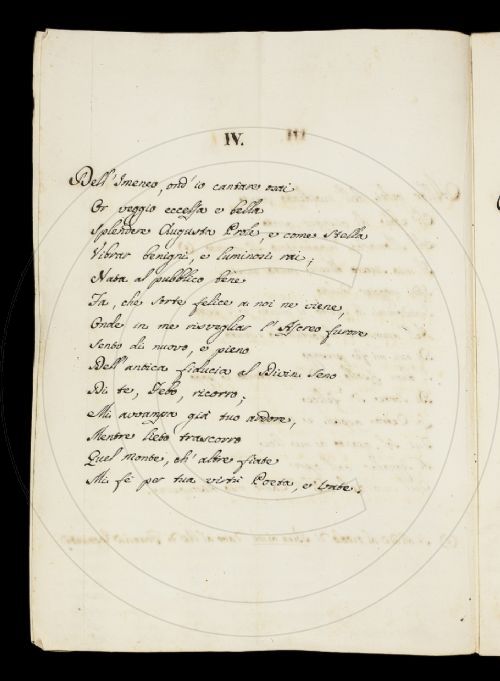 IV.
Dell' Imeneo, ond' io cantare osai
Or veggio eccelsa e bella
Splendere Augusta Prole, e come Stella
Vibrar benigni, e luminosi rai;
Nata al pubblico bene
Fa, che sorte felice a noi ne viene,
Onde in me risvegliar l' Ascreo furore
Sento di nuovo, e pieno
Dell' antica fiducia al Divin Seno
Di te, Febo, ricorro;
Mi avvampa già tuo ardore,
Mentre lieto trascorro
Quel monte, ch' altre fiate
Mi fè per tua virtù Poeta, e Vate.